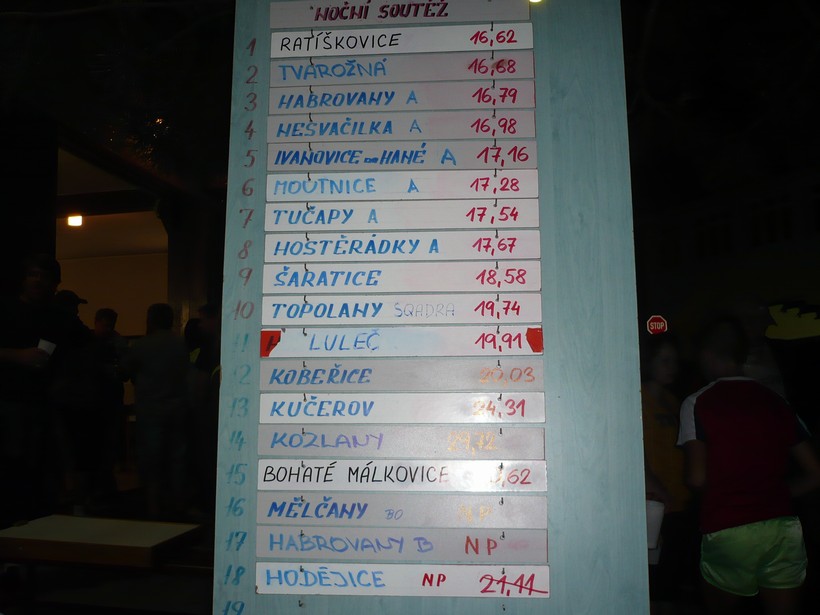 NOČNÍ SOUTĚŽ
1 RATÍŠKOVICE 16,62
2 TVAROŽNÁ 16,68
3 HABROVANY A 16,79
4 NESVAČILKA A 16,98
5 IVANOVICE na HANÉ A 17,16
6 MOUTNICE A 17,28
7 TUČAPY A 17,54
8 HOSTĚRÁDKY A 17,67
9 ŠARATICE 18,58
10 TOPOLANY SQADRA 19,74
11 LULEČ 19,91
12 KOBEŘICE 20.03
13 KUČEROV 24,31
14 KOZLANY
15 BOHATÉ MÁLKOVICE
16 MĚLČANY BO NP
17 HABROVANY B NP
18 HODĚJICE NP 21,11
19
STOP